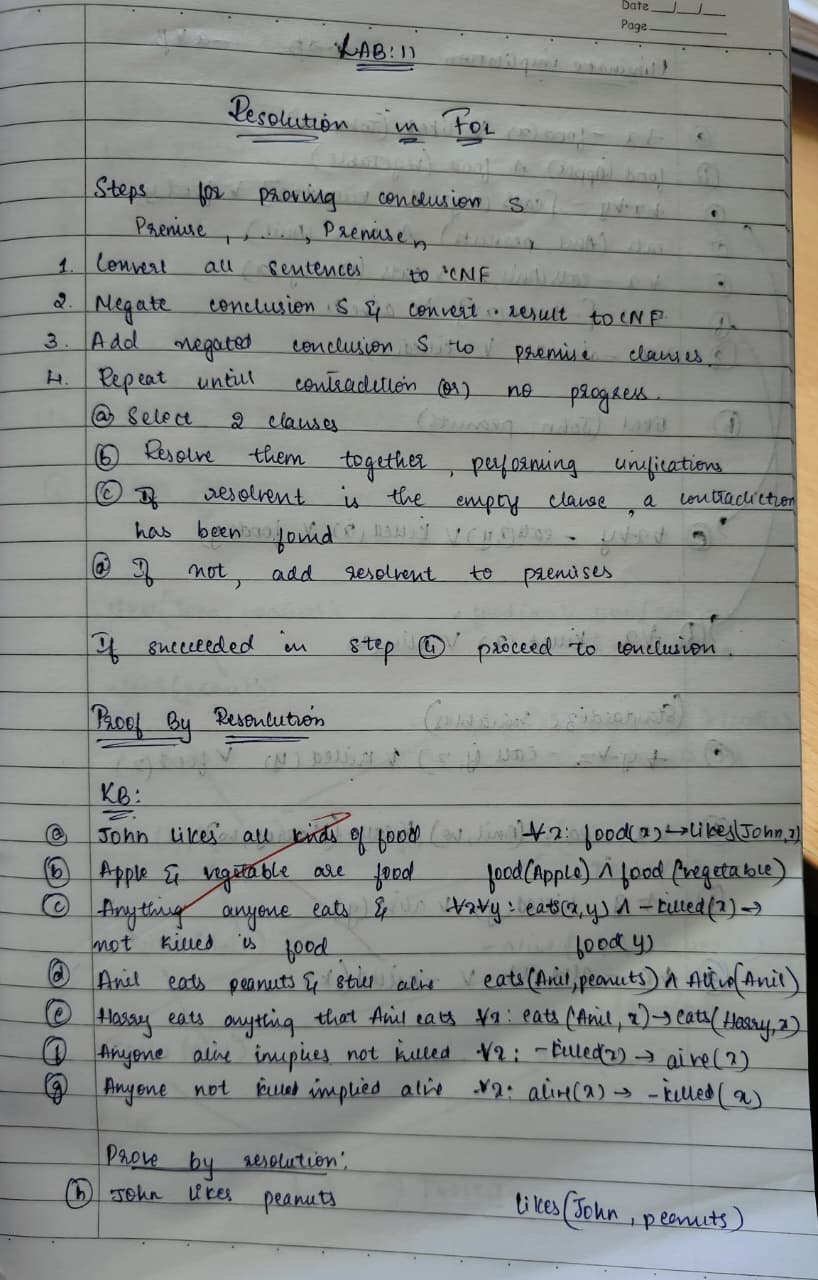 Date
Page
LAB: 11
Resolution in FOL
Steps for proving conclusion S
Premise1, ...., Premisen,
1. Convert all sentences to CNF
2. Negate conclusion S & convert result to CNF
3. Add negated conclusion S to premise clauses.
4. Repeat untill contradiction (or) no progress.
(a) Select 2 clauses
(b) Resolve them together, performing unifications
(c) If resolvent is the empty clause, a contradiction
has been found
(d) If not, add resolvent to premises
If succeeded in step (4) proceed to conclusion.
Proof By Resonlution
KB:
(a) John likes all kinds of food ∀x: food(x)→likes(John,x)
(b) Apple & vegetable are food food(Apple) ∧ food(vegetable)
(c) Anything anyone eats & ∀x∀y: eats(x,y) ∧ ¬killed(x) →
not killed is food food(y)
(d) Anil eats peanuts & still alive eats(Anil,peanuts) ∧ Alive(Anil)
(e) Harry eats anything that Anil eats ∀x: eats(Anil,x)→eats(Harry,x)
(f) Anyone alive implies not killed ∀x: ¬killed(x) → alive(x)
(g) Anyone not killed implied alive ∀x: alive(x) → ¬killed(x)
Prove by resolution:
(h) John likes peanuts likes(John, peanuts)